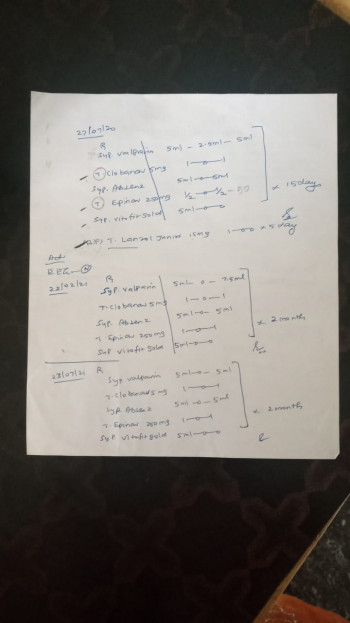 27/07/20
R
Syp. valparin 5ml - 2.5ml - 5ml
T Clobanav 5mg 1-0-1
Syp. Absenz 5ml-0-5ml
T Epinav 250mg 1/2-0-1/2
Syp. vitafit gold 5ml-0-0
x 15 day
T. Lanzol Junior 15mg 1-0-0 x 5 day
Adv
EEG
22/02/21 R
Syp. Valparin 5ml-0-7.5ml
T. Clobanav 5mg 1-0-1
Syp. Absenz 5ml-0-5ml
T Epinav 250mg 1-0-1
Syp Vitafit Gold 5ml-0-0
x 2 month
R
Syp valparin 5ml-0-5ml
T. Clobanav 5mg 1-0-1
Syp Absenz 5ml-0-5ml
T Epinav 250mg 1-0-1
Syp vitafit gold 5ml-0-0
x 2 month